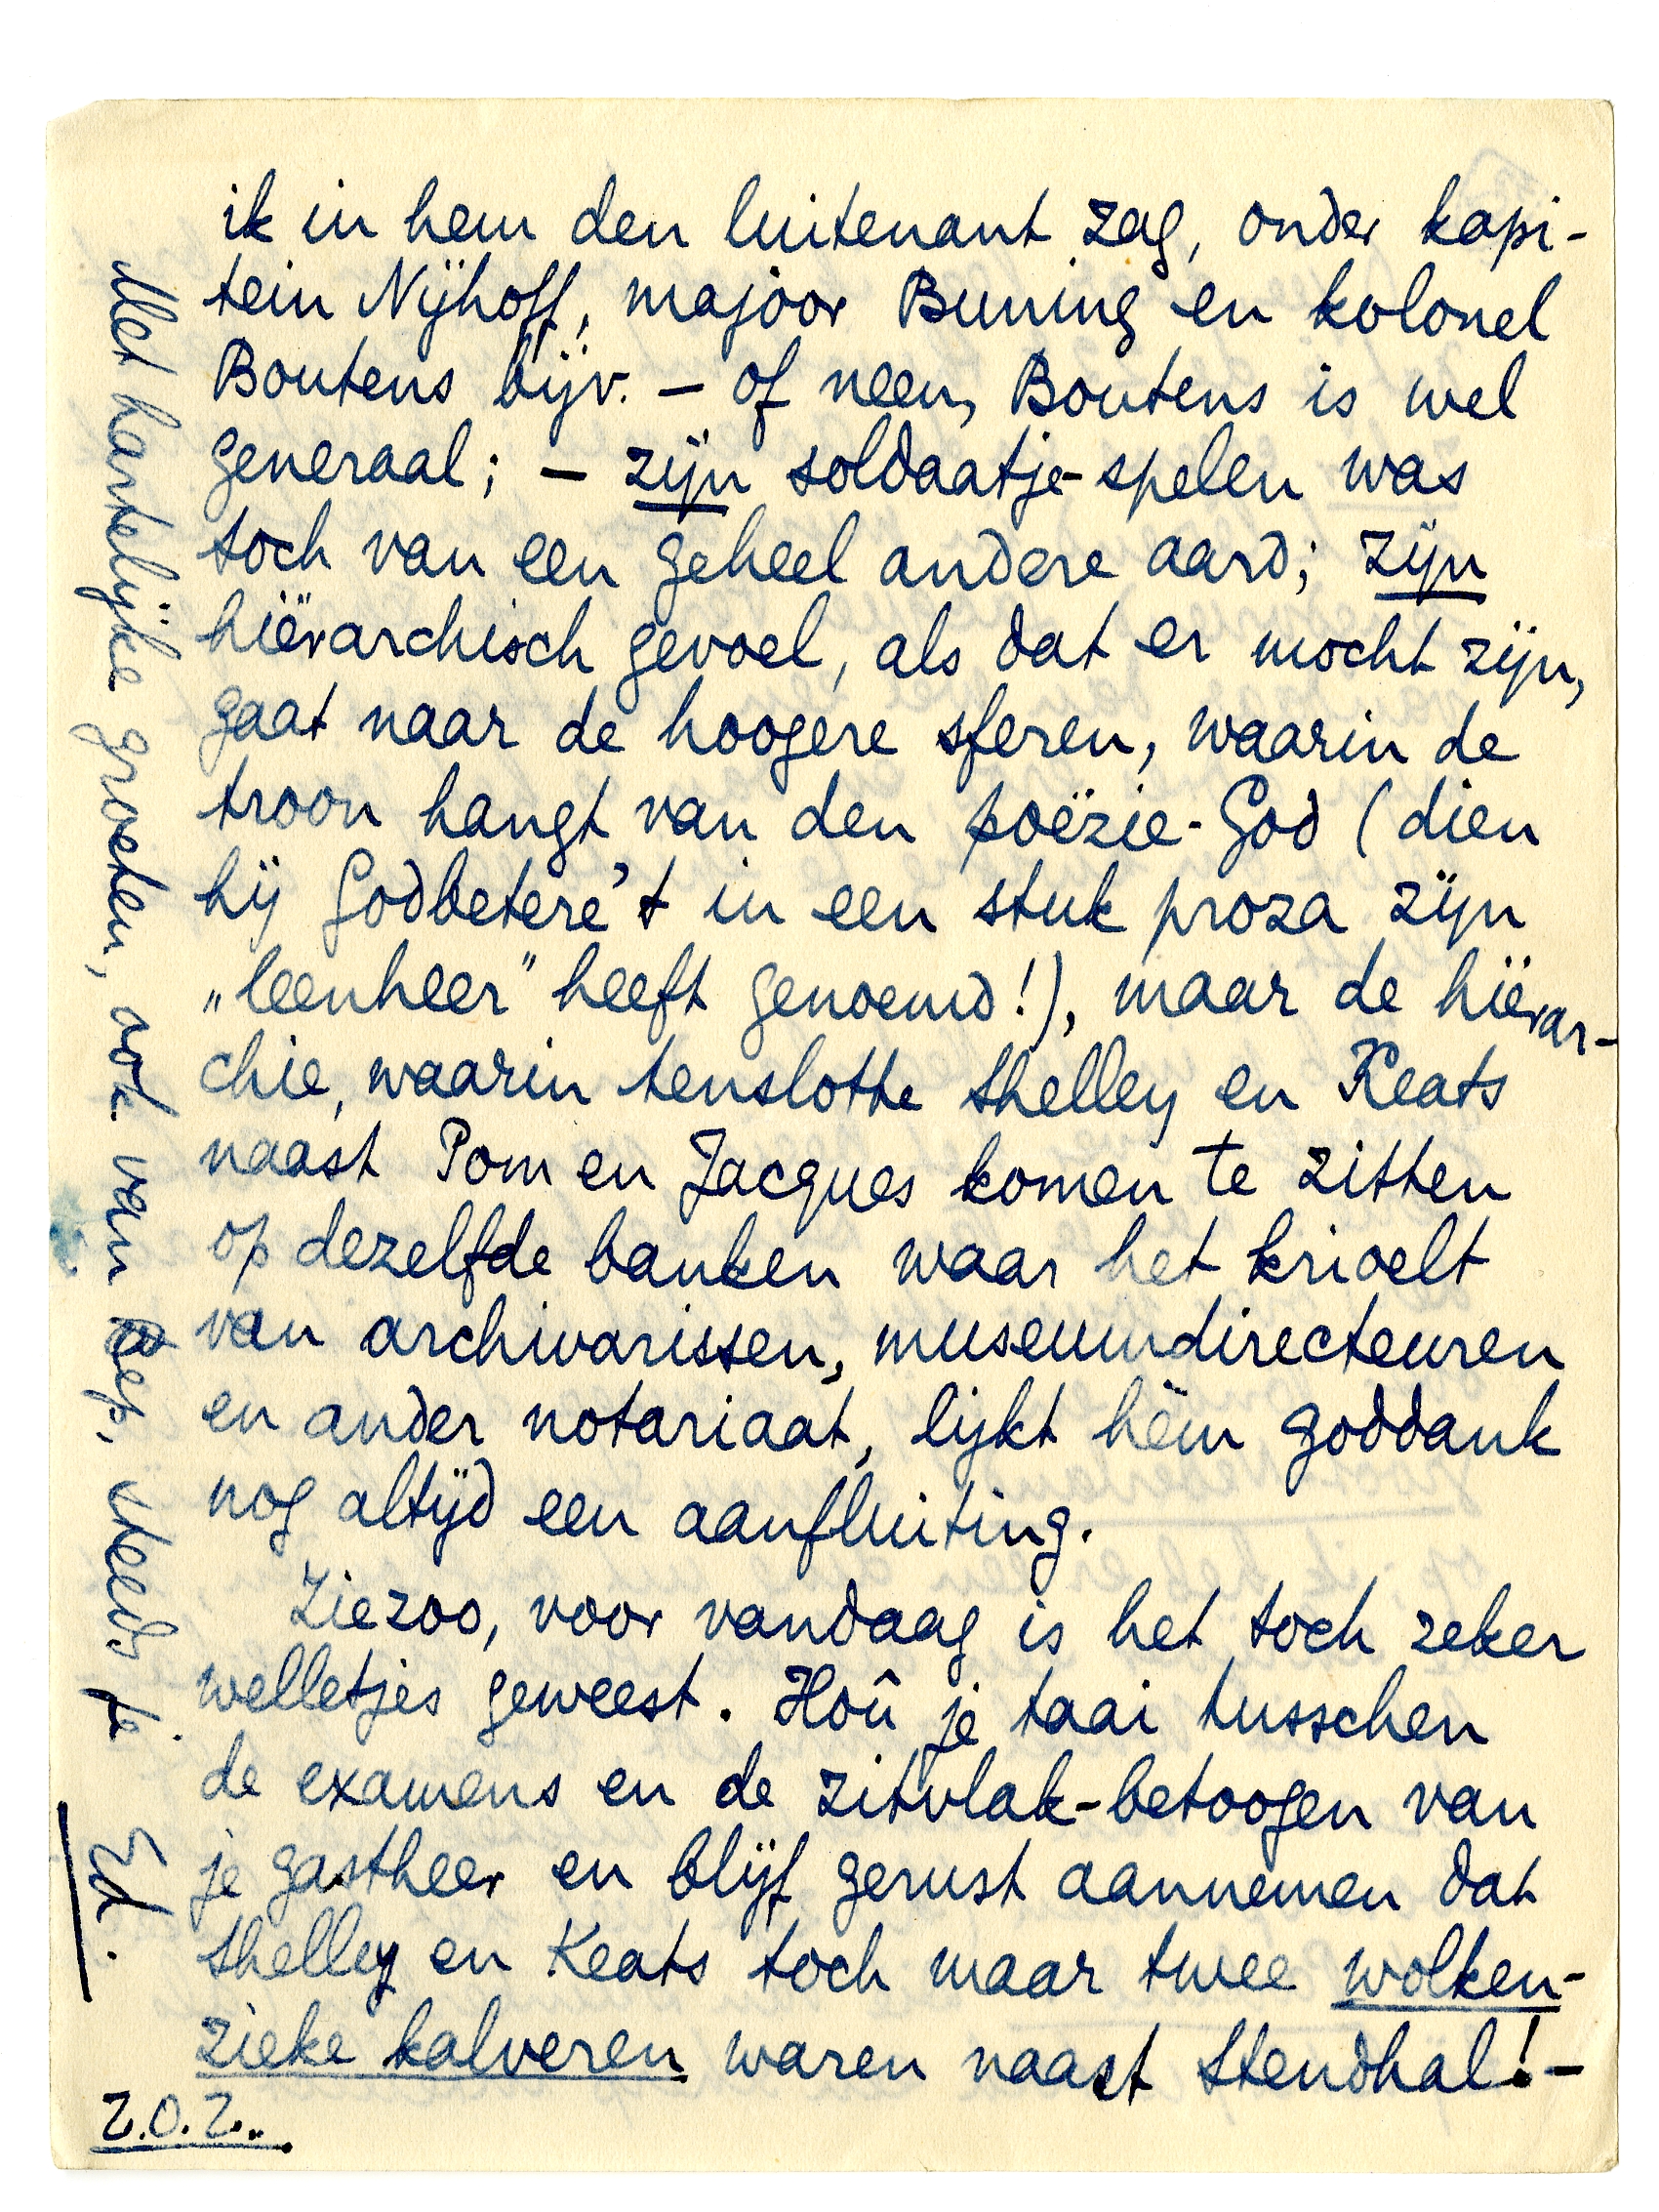 ik in hem den luitenant zag, onder kapi-
tein Nijhoff, majoor Buning en kolonel
Boutens bijv. — of neen, Boutens is wel
generaal; — zijn soldaatje-spelen was
toch van een geheel andere aard; zijn
hiërarchisch gevoel, als dat er mocht zijn,
gaat naar de hoogere sferen, waarin de
troon hangt van den poëzie-God (dien
hij Godbetere't in een stuk proza zijn
„leenheer" heeft genoemd!), maar de hiërar-
chie, waarin tenslotte Shelley en Keats
naast Pom en Jacques komen te zitten
op dezelfde banken waar het krioelt
van archivarissen, museumdirecteuren
en ander notariaat, lijkt hèm goddank
nog altijd een aanfluiting.
Ziezoo, voor vandaag is het toch zeker
welletjes geweest. Hoû je taai tusschen
de examens en de zitvlak-betoogen van
je gastheer en blijf gerust aannemen dat
Shelley en Keats toch maar twee wolken-
zieke kalveren waren naast Stendhal! —
Z.O.Z.
Met hartelijke groeten, ook van Bep, steeds je
Ed.